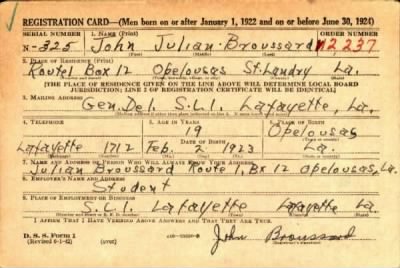 REGISTRATION CARD—(Men born on or after January 1, 1922 and on or before June 30, 1924)
SERIAL NUMBER 1. NAME (Print) ORDER NUMBER
N-325 John Julian Broussard 12,237
(First) (Middle) (Last)
2. PLACE OF RESIDENCE (Print)
Route 1 Box 12 Opelousas St. Landry La.
[THE PLACE OF RESIDENCE GIVEN ON THE LINE ABOVE WILL DETERMINE LOCAL BOARD
JURISDICTION; LINE 2 OF REGISTRATION CERTIFICATE WILL BE IDENTICAL]
3. MAILING ADDRESS
Gen. Del. S.L.I. Lafayette, La.
4. TELEPHONE 5. AGE IN YEARS 6. PLACE OF BIRTH
19 Opelousas
DATE OF BIRTH
Lafayette 1712 Feb. 2 1923 La.
7. NAME AND ADDRESS OF PERSON WHO WILL ALWAYS KNOW YOUR ADDRESS
Julian Broussard Route 1, Bx 12 Opelousas, La.
8. EMPLOYER'S NAME AND ADDRESS
Student
9. PLACE OF EMPLOYMENT OR BUSINESS
S.L.I. Lafayette Lafayette La.
I AFFIRM THAT I HAVE VERIFIED ABOVE ANSWERS AND THAT THEY ARE TRUE.
D. S. S. Form 1
(Revised 6-1-42) (over)
John Broussard